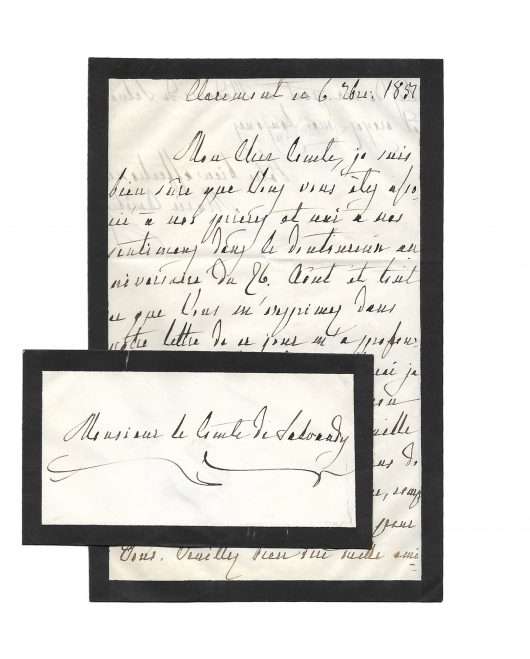 Claremont ce 6 7bre: 1851
Mon Cher Comte, je suis
bien sûre que Vous vous êtes asso-
cié à nos prières et uni à nos
sentimens dans le douloureux an
niversaire du 26. Août et tout
ce que Vous m'exprimez dans
votre lettre de ce jour m'a profon-
je
de
pour
Vous. Veuillez bien
Monsieur le Comte de Salvandy